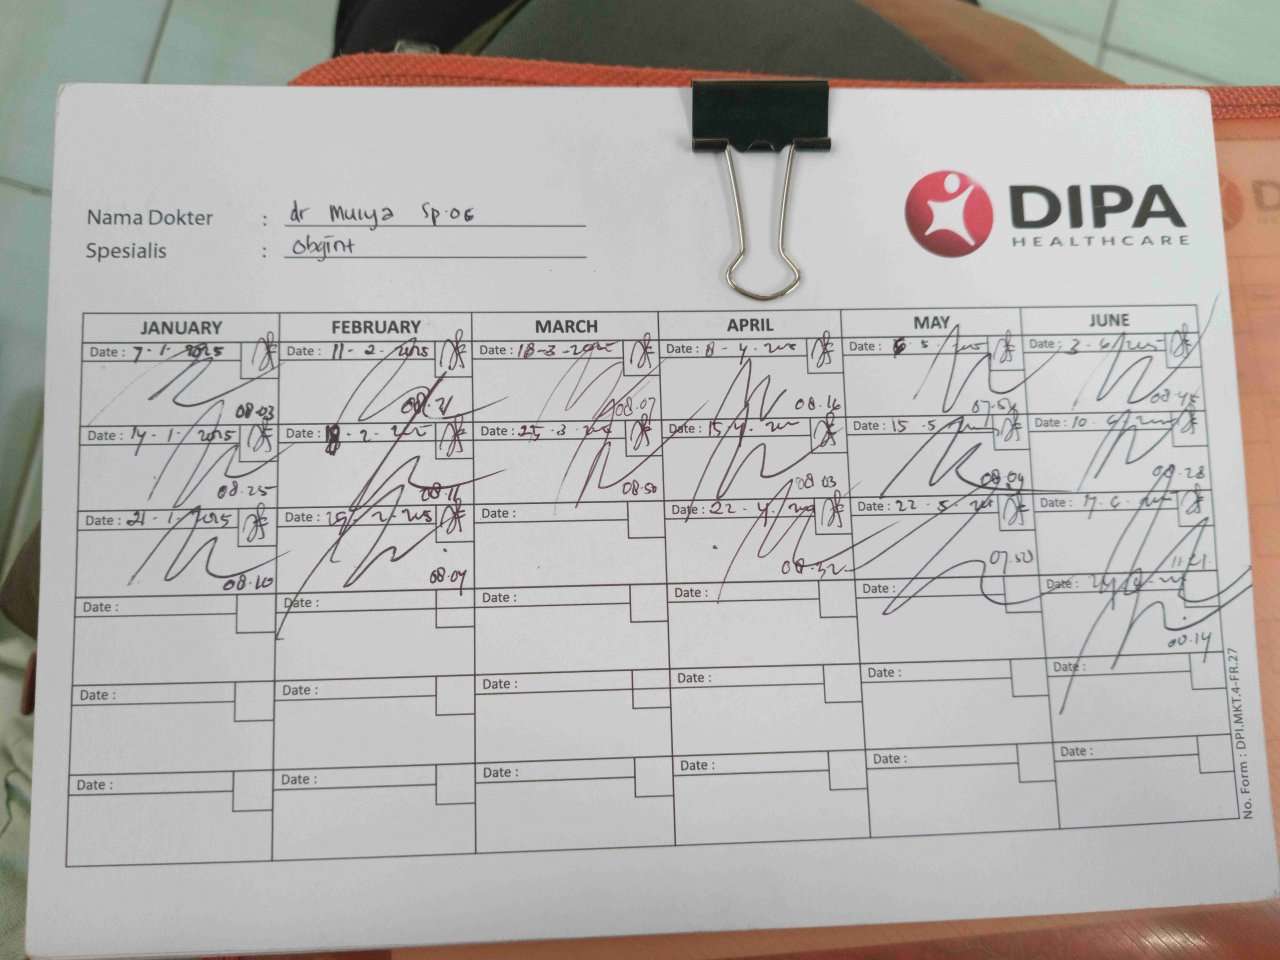 DIPA
HEALTHCARE
Nama Dokter : dr Mulya Sp.OG
Spesialis : Obgint
JANUARY FEBRUARY MARCH APRIL MAY JUNE
Date : 7-1-2025 Date : 11-2-2025 Date : 18-3-2025 Date : 8-4- Date : 5 Date : 3-6-
08.03 08.21 08.07 08.16 07.54 08.45
Date : 14-1-2025 Date : 18-2-2025 Date : 25-3- Date : 15-4- Date : 15-5- Date : 10-6-
08.25 08.16 08.50 08.03 08.04 08.28
Date : 21-1-2025 Date : 25-2-2025 Date : Date : 22-4- Date : 22-5- Date : 17-6-
08.10 08.04 08.32 07.50 11.21
Date : Date : Date : Date : Date : Date : 24-6-
08.14
Date : Date : Date : Date : Date : Date :
Date : Date : Date : Date : Date : Date :
No. Form : DPI.MKT.4-FR.27